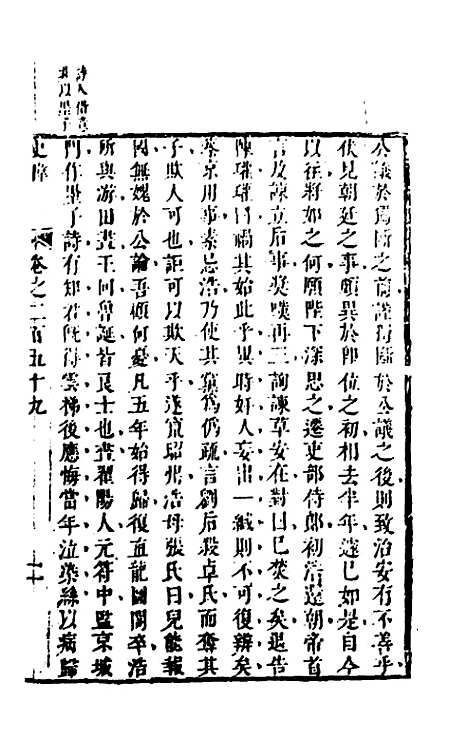 公議於獨斷之前謹獨斷於公議之後則致治安有不善乎
伏見朝廷之事頗異於卽位之初相去半年遽已如是自今
以往將如之何願陛下深思之遷吏部侍郎初浩還朝帝首
言及諫立后事奬嘆再三詢諫草安在對曰已焚之矣退告
陳瓘瓘曰禍其始此乎異時奸人妄出一緘則不可復辨矣
蔡京用事素忌浩乃使其黨爲僞疏言劉后殺卓氏而奪其
子欺人可也詎可以欺天乎遂竄昭州浩母張氏曰兒能報
國無媿於公論吾顧何憂凡五年始得歸復直龍圖閣卒浩
所與游田晝王回曾誕皆良士也晝陽翟人元符中監京城
門作墨子詩有知君旣得雲梯後應悔當年泣染絲以病歸
史
卷之二百五十九
詩人借意
以墨子